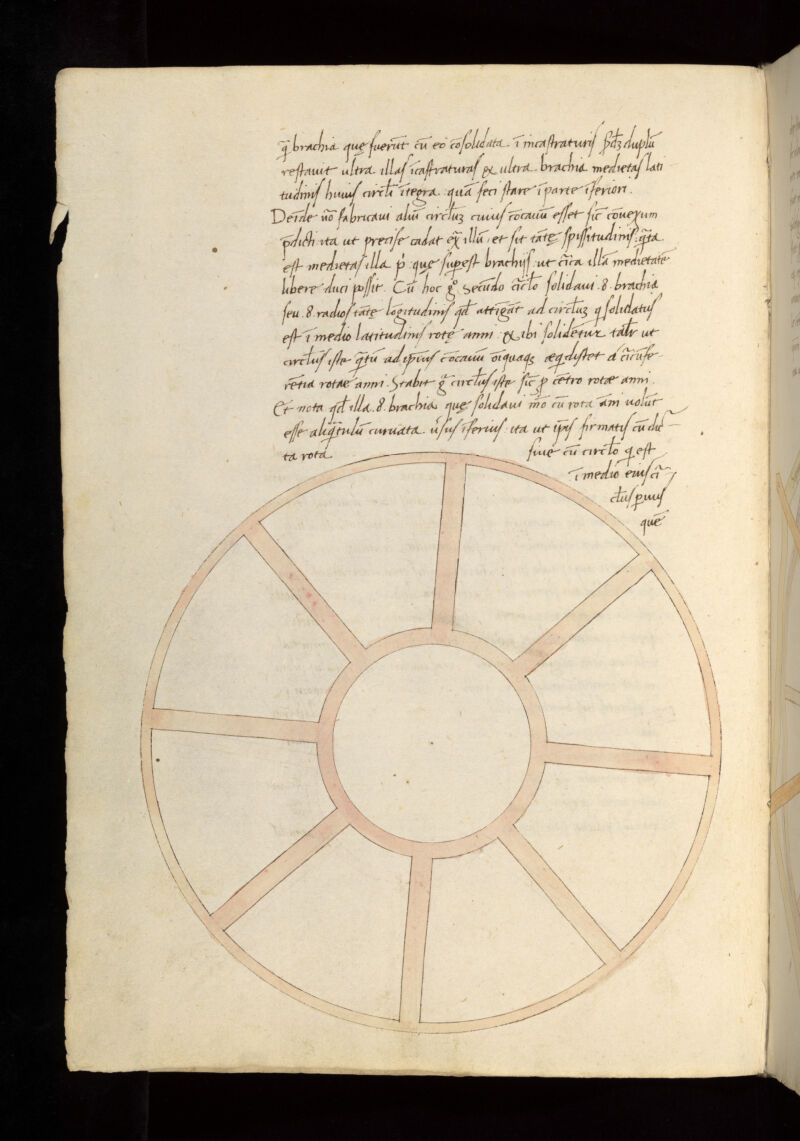 q̃ brachia que fuerūt cū eo cōsolidata. ī incastraturis p̄dꝫ duplū
restauit ultra illas īcastraturas ⁊ ultra brachia medietas lati
tudinis huius circl̄i ītegra. quā feci stare ī parte īferiori.
Deīde uō fabricaui aliū circl̄uꝫ cuius cōcauū esset sic cōuexum
p̄dicti ita ut precise cadat ex̄ illū, et sit tāte spissitudinis q̄ta
est medietas illa p̄ que supest brachijs ut cīca illā medietatē
libere duci possit. Cū hoc g° secundo circl̄o solidaui .8. brachia
seu .8. radios tāte lōgitudinis qd̄ attīgāt ad circl̄uꝫ q̄ solidatus
est ī medio latitudinis rote anni ⁊ ibi solidētur talr̄ ut
circl̄us iste q̄tū ad ipsius cōcauū oīquaqꝫ eq̄distet a circūfe
rētia rotae anni. Stabit g̃ circl̄us iste sic p̄ cētro rotae anni.
Et nota qd̄ illa .8. brachia que solidaui mō cū rota āni uolūt
esse aliq̄tulū curuata. uīsus īferius ita ut ip̄is firmatis cū dic
ta rota siue cū circl̄o q̄ est
ī medio eius ci
cl̄us p̄uus
quē